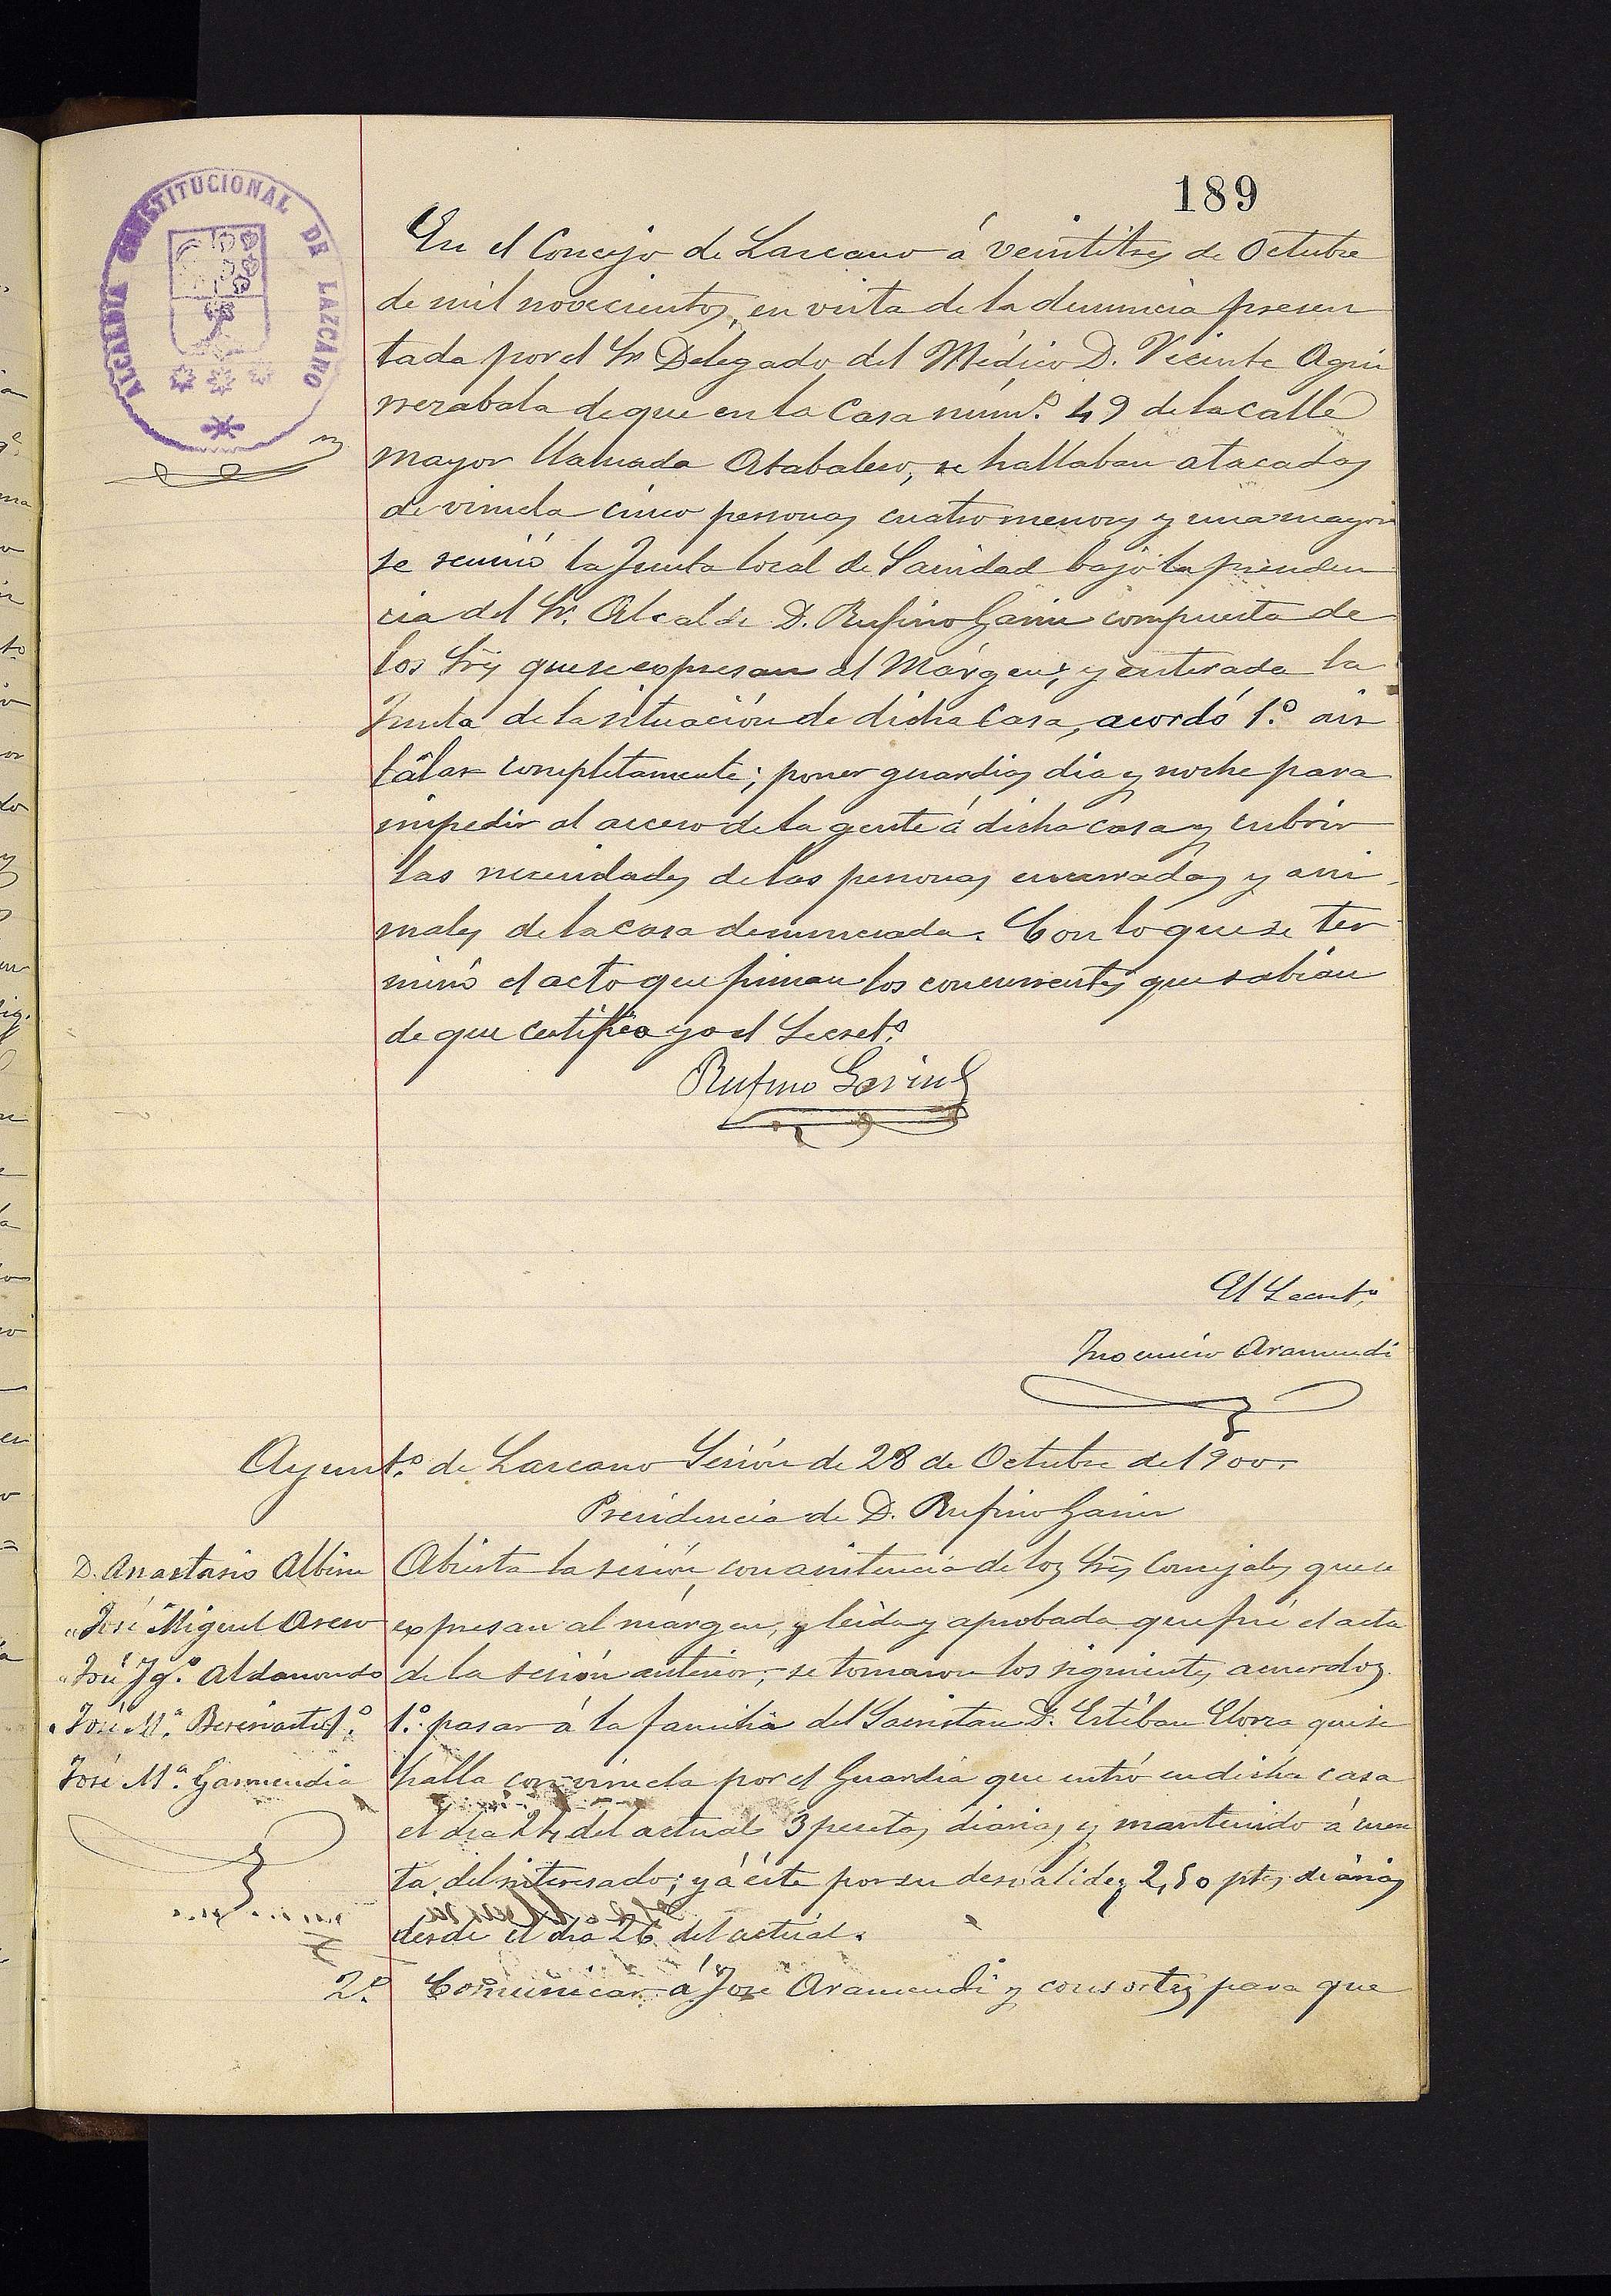 189
ALCALDIA CONSTITUCIONAL DE LAZCANO
En el Concejo de Lazcano á veintitres de Octubre
de mil novecientos, en vista de la denuncia presen
tada por el Sr Delegado del Médico D. Vicente Aguir
rezabala de que en la Casa núm.º 49 de la calle
mayor llamada Atabalero, se hallaban atacadas
de viruela cinco personas cuatro menores y una mayor
se reunió la Junta local de Sanidad bajo la presiden
cia del Sr. Alcalde D. Rufino Garin compuesta de
los Srs que se expresan al Márgen; y enterada la
Junta de la situación de dicha Casa, acordó 1.º ais
lar completamente; poner guardias dia y noche para
impedir al acceso de la gente á dicha casa y cubrir
las necesidades de las personas encerradas y ani
males de la casa denunciada. Con lo que se ter
minó el acto que firman los concurrentes que sabian
de que certifico yo el Secret.º
Rufino Garin
El Secret.º
Inocencio Aramendi
Ayunt.º de Lazcano Sesión de 28 de Octubre de 1900.
Presidencia de D. Rufino Garin
D. Anastasio Albisu
" José Miguel Orero
" José Ig.º Aldanondo
" José M.ª Beresiartu
José M.ª Garmendia
Abierta la sesión con asistencia de los Srs Concejales que se
expresan al márgen, y leida y aprobada que fué el acta
de la sesión anterior, se tomaron los siguientes acuerdos.
1.º pasar á la familia del Sacristan D. Estéban Elorza que se
halla con viruela por el Guardia que entró en dicha casa
el dia 24 del actual 3 pesetas diarias y mantenido á cuen
ta del interesado; y á éste por su desvalidez 2,50 ptas diarias
desde el dia 26 del actual.
2.º Comunicar á José Aramendi y consortes para que